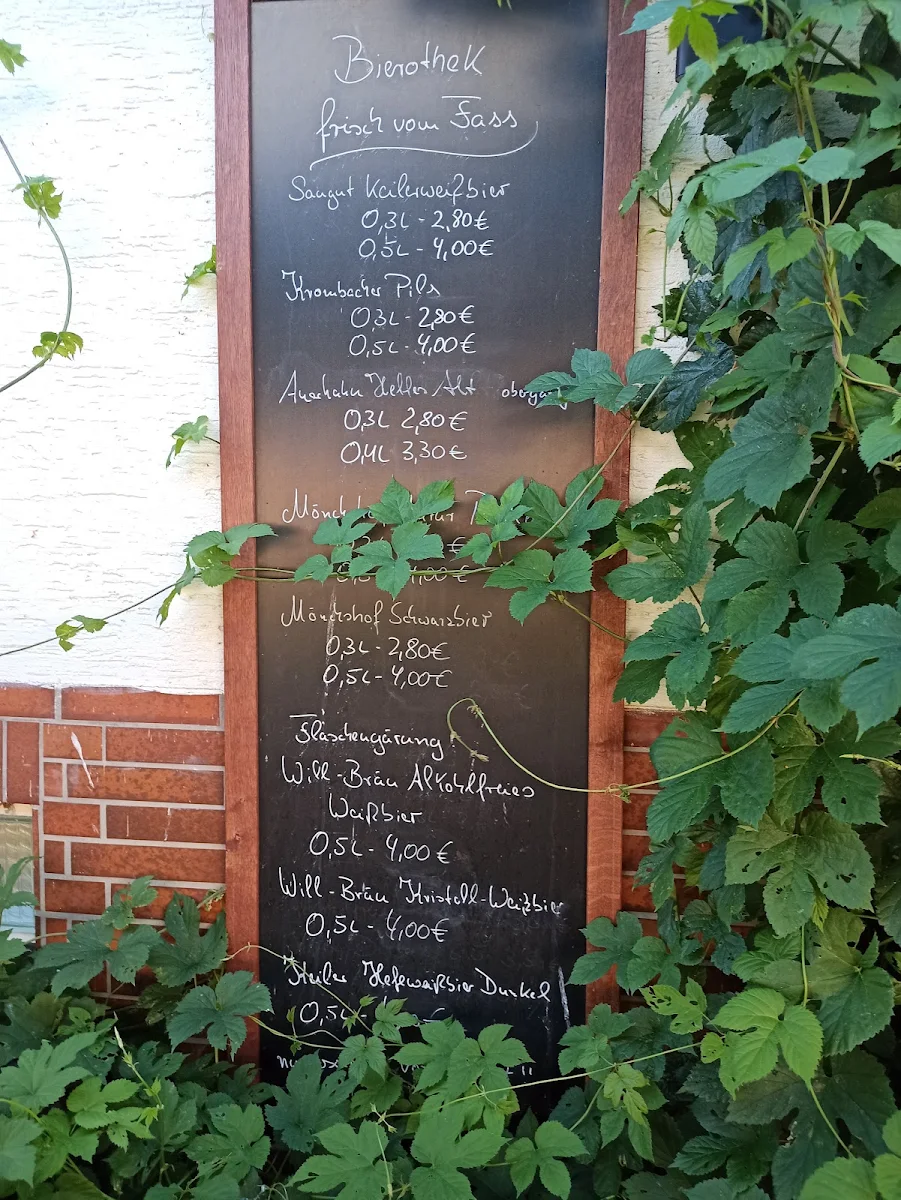 Bierothek
frisch vom Fass
Saugut Keilerweißbier
0,3L - 2,80€
0,5L - 4,00€
Krombacher Pils
0,3L - 2,80€
0,5L - 4,00€
Auerhahn Helles Alt
0,3L 2,80€
0,4L 3,30€
Mönchshof Schwarzbier
0,3L - 2,80€
0,5L - 4,00€
Flaschengärung
Will-Bräu Alkohlfreies
Weißbier
0,5L - 4,00€
Will-Bräu Kristall-Weißbier
0,5L - 4,00€
Keiler Hefeweißbier Dunkel
0,5L -